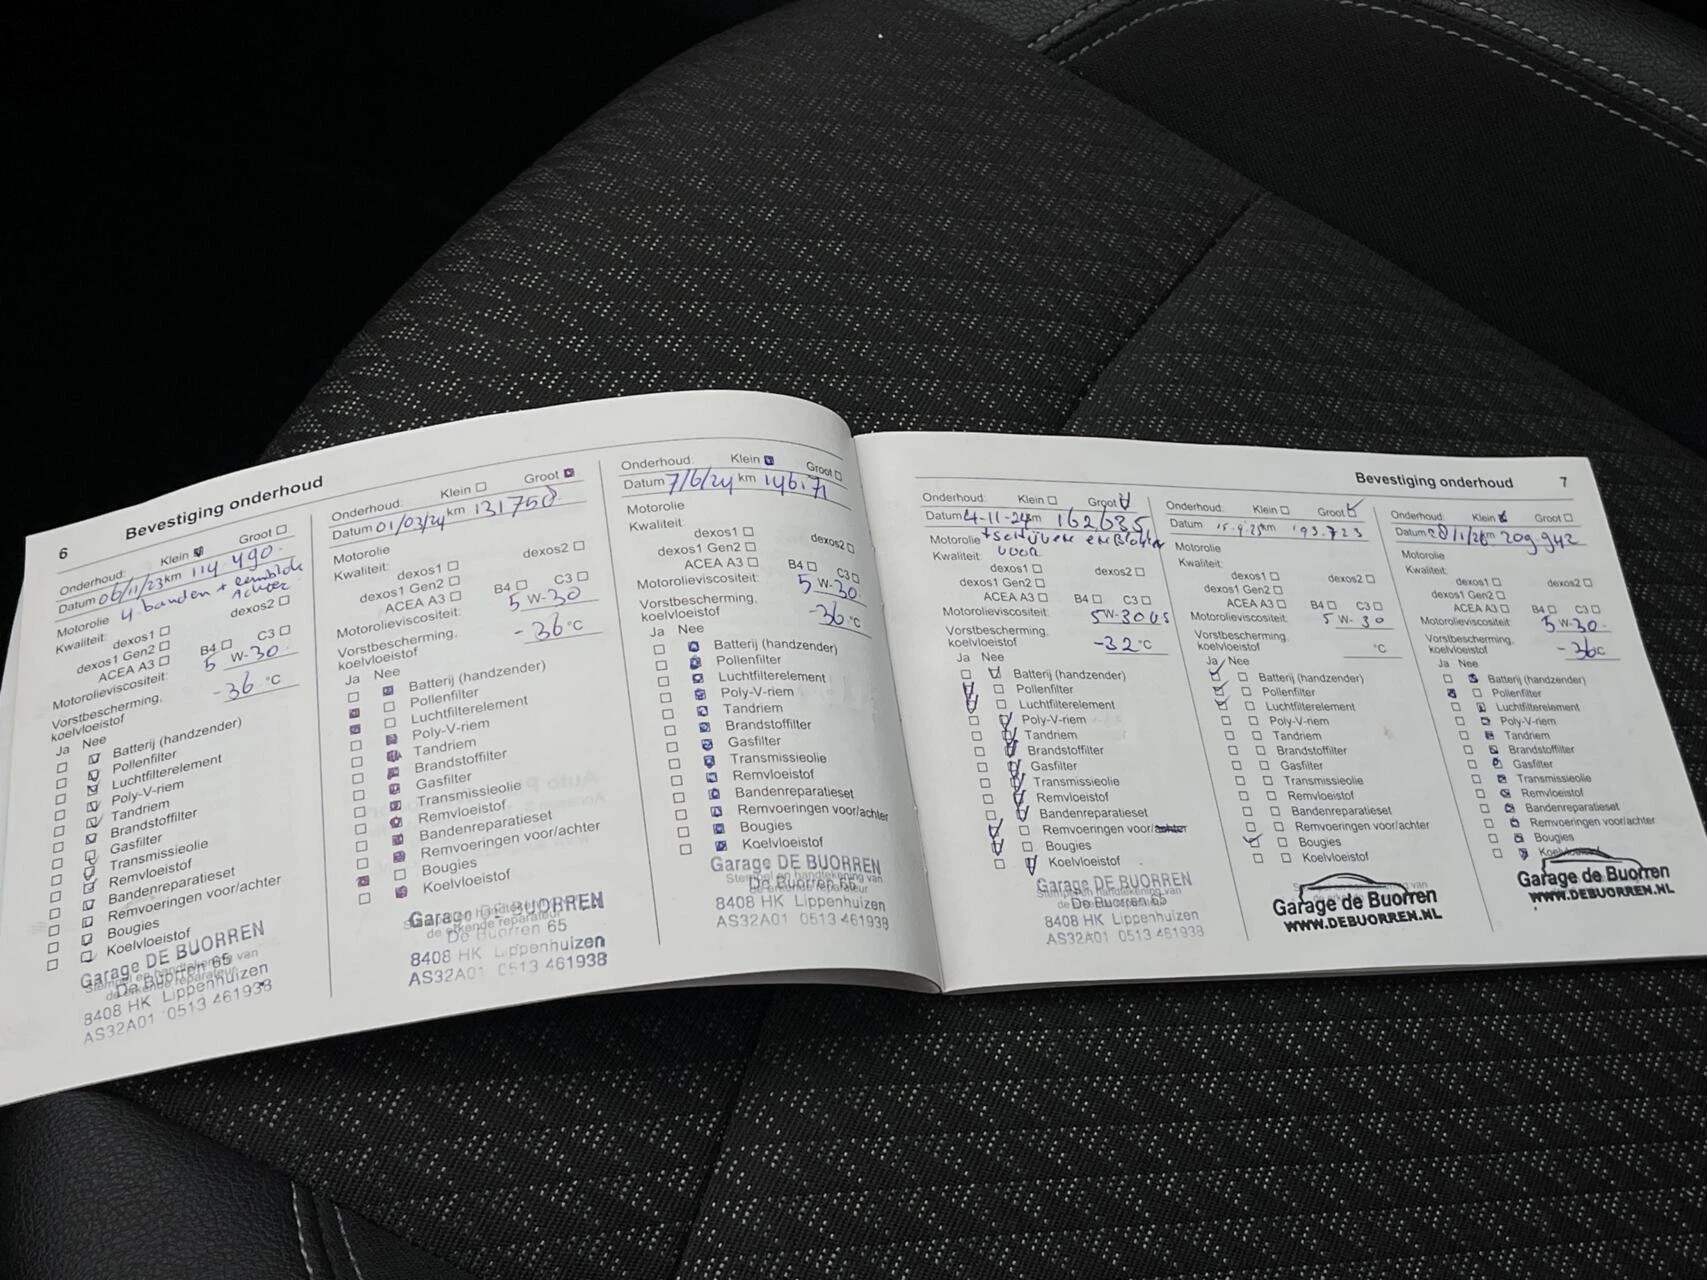 6 Bevestiging onderhoud
Onderhoud: Klein Groot
Datum 06/11/23 km 114.490
4 banden + remblok
Achter
Motorolie
Kwaliteit: dexos2
dexos1
dexos1 Gen2
ACEA A3 B4 C3
Motorolieviscositeit: 5 W-30
Vorstbescherming,
koelvloeistof -36 °C
Ja Nee
Batterij (handzender)
Pollenfilter
Luchtfilterelement
Poly-V-riem
Tandriem
Brandstoffilter
Gasfilter
Transmissieolie
Remvloeistof
Bandenreparatieset
Remvoeringen voor/achter
Bougies
Koelvloeistof
Stempel en handtekening van
de erkende reparateur
Garage DE BUORREN
De Buorren 65
8408 HK Lippenhuizen
AS32A01 0513 461938
Onderhoud: Klein Groot
Datum 01/03/24 km 131750
Motorolie
Kwaliteit: dexos2
dexos1
dexos1 Gen2
ACEA A3 B4 C3
Motorolieviscositeit: 5 W-30
Vorstbescherming,
koelvloeistof -36 °C
Ja Nee
Batterij (handzender)
Pollenfilter
Luchtfilterelement
Poly-V-riem
Tandriem
Brandstoffilter
Gasfilter
Transmissieolie
Remvloeistof
Bandenreparatieset
Remvoeringen voor/achter
Bougies
Koelvloeistof
de erkende reparateur
Garage DE BUORREN
De Buorren 65
8408 HK Lippenhuizen
AS32A01 0513 461938
Onderhoud: Klein Groot
Datum 7/6/24 km 146.71
Motorolie
Kwaliteit:
dexos1 dexos2
dexos1 Gen2
ACEA A3 B4 C3
Motorolieviscositeit: 5 W-30
Vorstbescherming,
koelvloeistof -36 °C
Ja Nee
Batterij (handzender)
Pollenfilter
Luchtfilterelement
Poly-V-riem
Tandriem
Brandstoffilter
Gasfilter
Transmissieolie
Remvloeistof
Bandenreparatieset
Remvoeringen voor/achter
Bougies
Koelvloeistof
Stempel en handtekening van
de erkende reparateur
Garage DE BUORREN
De Buorren 65
8408 HK Lippenhuizen
AS32A01 0513 461938
Bevestiging onderhoud 7
Onderhoud: Klein Groot
Datum 4-11-24 km 162635
Motorolie + schijven en blokken
voor
Kwaliteit:
dexos1 dexos2
dexos1 Gen2
ACEA A3 B4 C3
Motorolieviscositeit: 5W-30
Vorstbescherming,
koelvloeistof -32 °C
Ja Nee
Batterij (handzender)
Pollenfilter
Luchtfilterelement
Poly-V-riem
Tandriem
Brandstoffilter
Gasfilter
Transmissieolie
Remvloeistof
Bandenreparatieset
Remvoeringen voor/achter
Bougies
Koelvloeistof
Stempel en handtekening van
de erkende reparateur
Garage DE BUORREN
De Buorren 65
8408 HK Lippenhuizen
AS32A01 0513 461938
Onderhoud: Klein Groot
Datum 15-9-25 km 193.723
Motorolie
Kwaliteit:
dexos1 dexos2
dexos1 Gen2
ACEA A3 B4 C3
Motorolieviscositeit: 5 W-30
Vorstbescherming,
koelvloeistof °C
Ja Nee
Batterij (handzender)
Pollenfilter
Luchtfilterelement
Poly-V-riem
Tandriem
Brandstoffilter
Gasfilter
Transmissieolie
Remvloeistof
Bandenreparatieset
Remvoeringen voor/achter
Bougies
Koelvloeistof
Garage de Buorren
WWW.DEBUORREN.NL
Onderhoud: Klein Groot
Datum 28/1/26 km 209.942
Motorolie
Kwaliteit:
dexos1 dexos2
dexos1 Gen2
ACEA A3 B4 C3
Motorolieviscositeit: 5 W-30
Vorstbescherming,
koelvloeistof -36 °C
Ja Nee
Batterij (handzender)
Pollenfilter
Luchtfilterelement
Poly-V-riem
Tandriem
Brandstoffilter
Gasfilter
Transmissieolie
Remvloeistof
Bandenreparatieset
Remvoeringen voor/achter
Bougies
Koelvloeistof
Garage de Buorren
WWW.DEBUORREN.NL